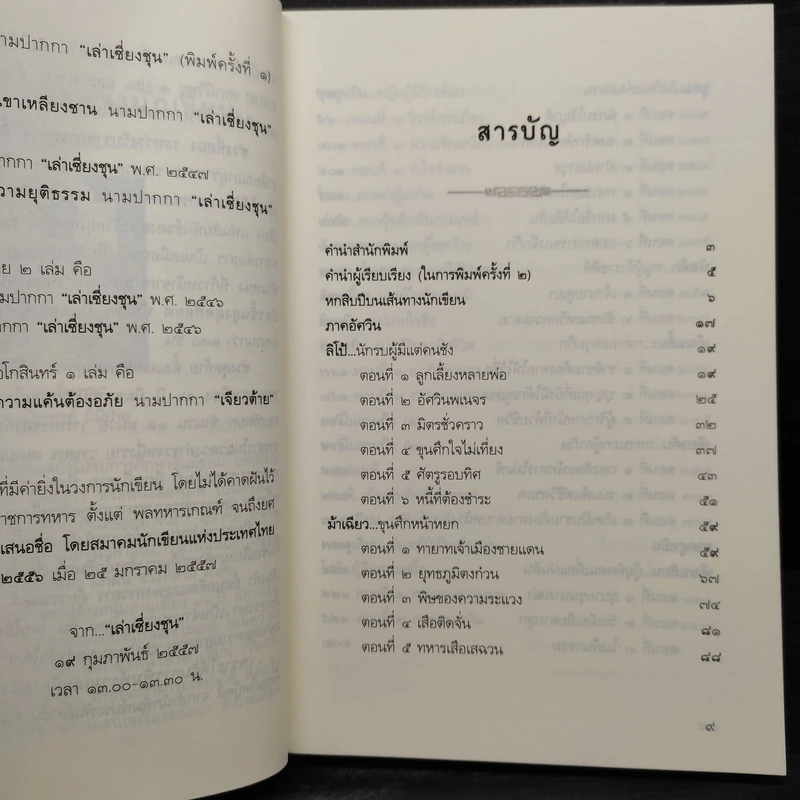 นามปากกา “เล่าเซี่ยงชุน” (พิมพ์ครั้งที่ ๑)
เขาเหลียงซาน นามปากกา “เล่าเซี่ยงชุน”
“เล่าเซี่ยงชุน” พ.ศ. ๒๕๔๗
ความยุติธรรม นามปากกา “เล่าเซี่ยงชุน”
๒ เล่ม คือ
นามปากกา “เล่าเซี่ยงชุน” พ.ศ. ๒๕๔๖
“เล่าเซี่ยงชุน” พ.ศ. ๒๕๔๖
โกสินทร์ ๑ เล่ม คือ
ความแค้นต้องอภัย นามปากกา “เจียวต้าย”
ที่มีค่ายิ่งในวงการนักเขียน โดยไม่ได้คาดฝันไว้
ราชการทหาร ตั้งแต่ พลทหารเกณฑ์ จนถึงยศ
เสนอชื่อ โดยสมาคมนักเขียนแห่งประเทศไทย
๒๕๕๖ เมื่อ ๒๕ มกราคม ๒๕๕๗
จาก...“เล่าเซี่ยงชุน”
๑๙ กุมภาพันธ์ ๒๕๕๗
เวลา ๑๓.๐๐-๑๓.๓๐ น.
สารบัญ
คำนำสำนักพิมพ์ ๓
คำนำผู้เรียบเรียง (ในการพิมพ์ครั้งที่ ๒) ๕
หกสิบปีบนเส้นทางนักเขียน ๖
ภาคอัศวิน ๑๗
ลิโป้...นักรบผู้มีแต่คนชัง ๑๙
ตอนที่ ๑ ลูกเลี้ยงหลายพ่อ ๑๙
ตอนที่ ๒ อัศวินพเนจร ๒๕
ตอนที่ ๓ มิตรชั่วคราว ๓๒
ตอนที่ ๔ ขุนศึกใจไม่เที่ยง ๓๗
ตอนที่ ๕ ศัตรูรอบทิศ ๔๓
ตอนที่ ๖ หนี้ที่ต้องชำระ ๕๑
ม้าเฉียว...ขุนศึกหน้าหยก ๕๙
ตอนที่ ๑ ทายาทเจ้าเมืองชายแดน ๕๙
ตอนที่ ๒ ยุทธภูมิตงก๋วน ๖๗
ตอนที่ ๓ พิษของความระแวง ๗๔
ตอนที่ ๔ เสือติดจั่น ๘๑
ตอนที่ ๕ ทหารเสือเสฉวน ๘๘
๙